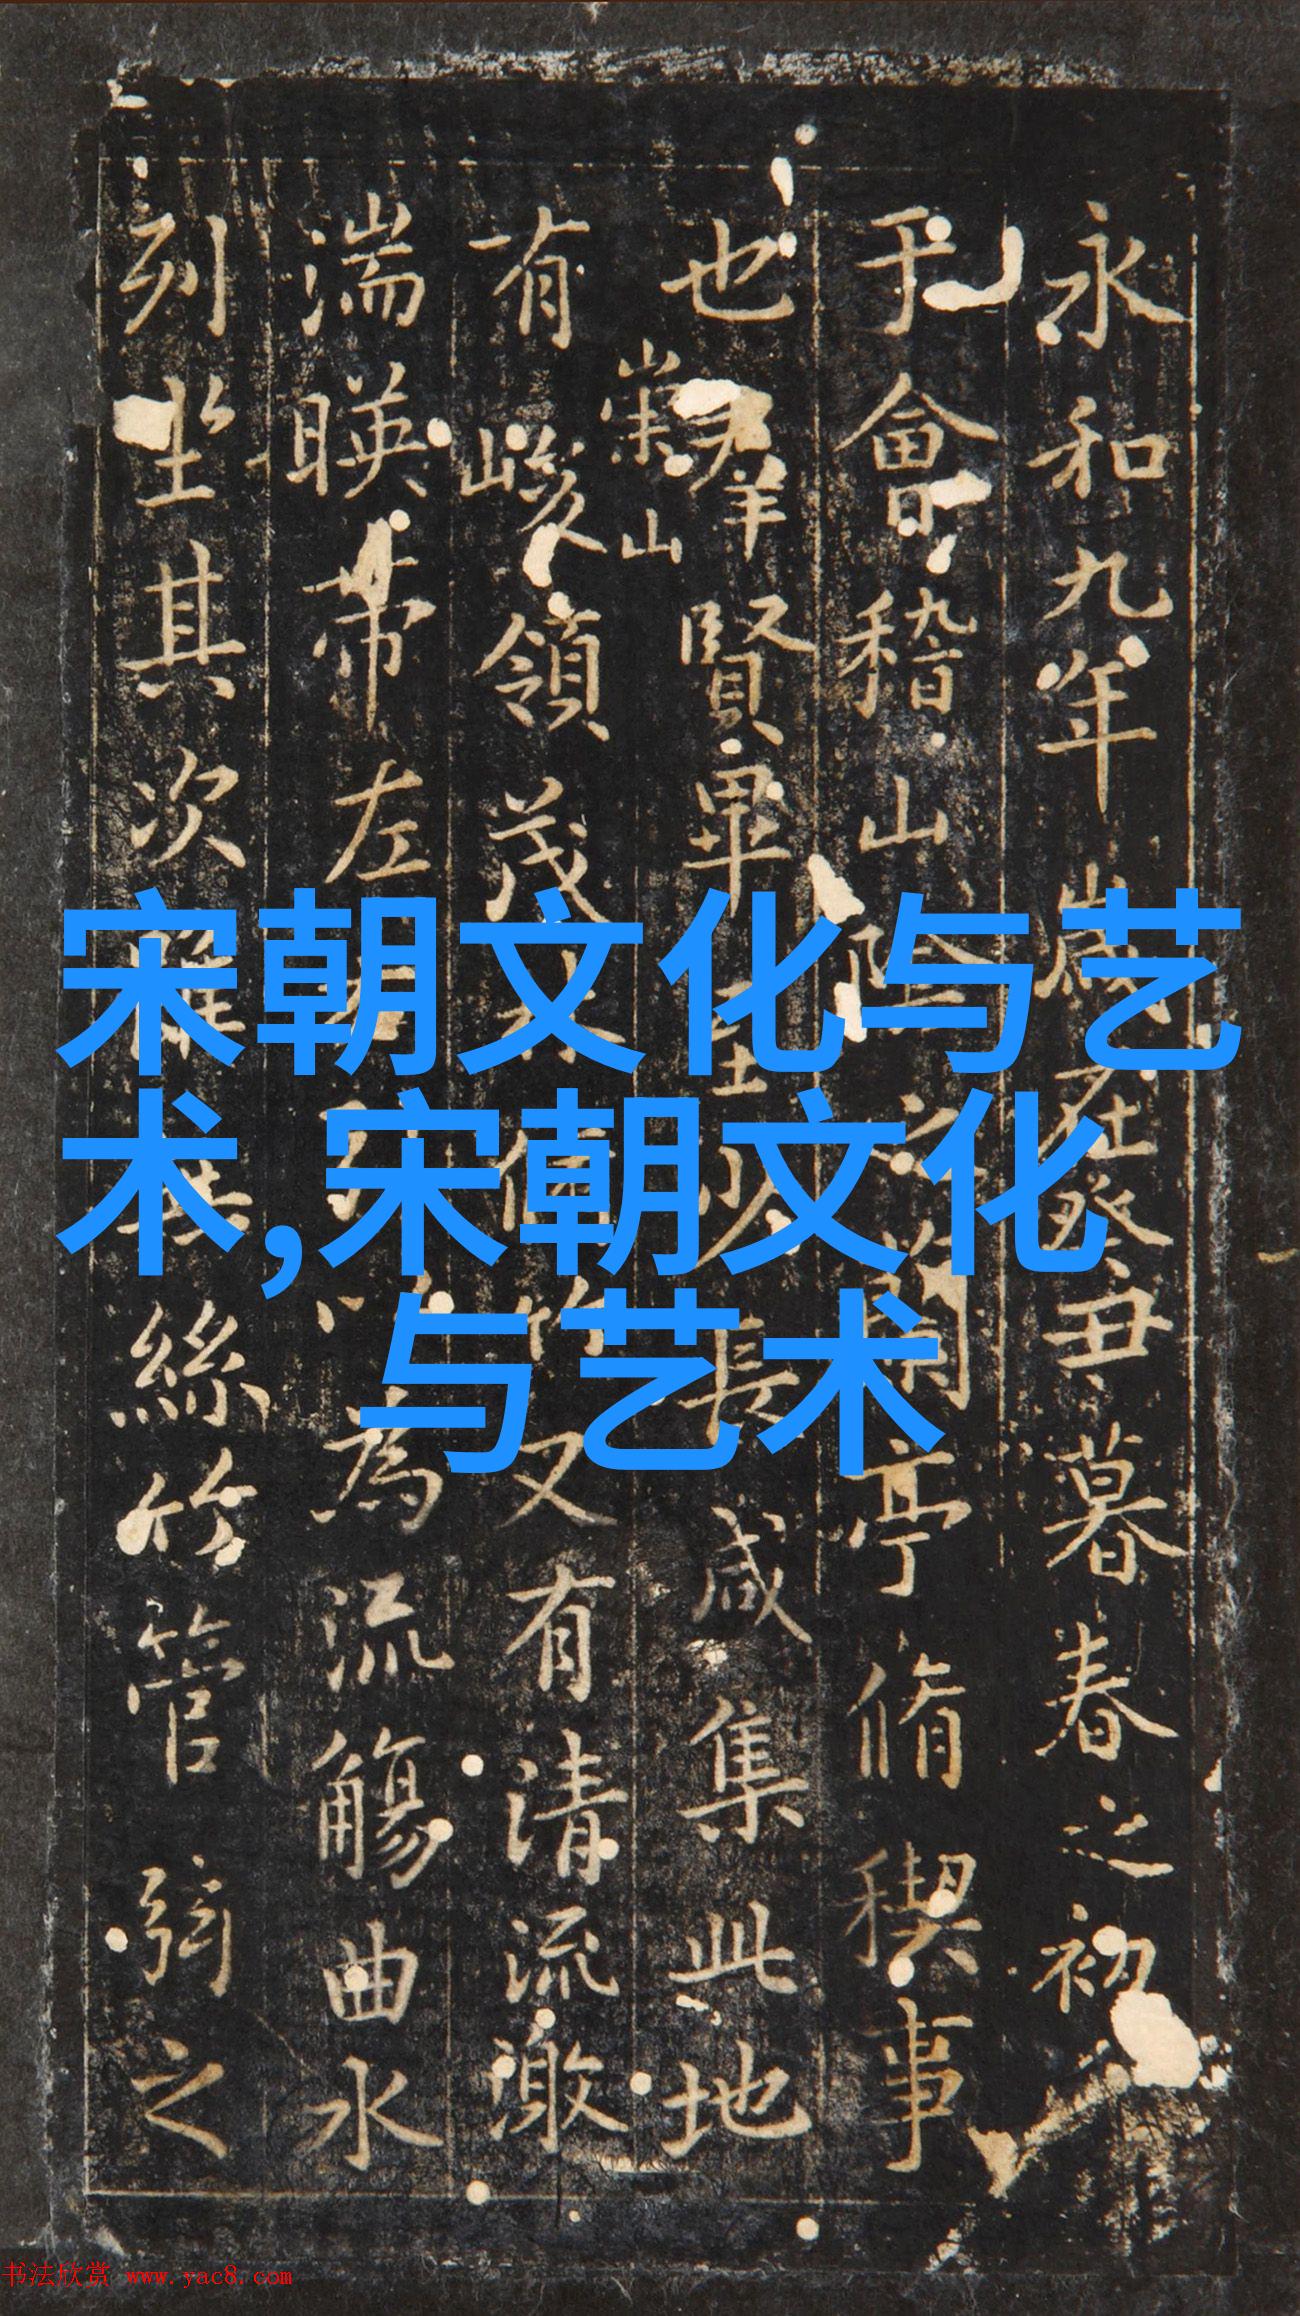 永和九年歲在癸丑暮春之初
于會稽山陰之蘭亭脩稧事
也羣賢畢至少長咸集此地
崇山
有峻領茂林脩竹又有清流激
湍暎帶左右引以為流觴曲水
列坐其次雖無絲竹管弦之
宋朝文化与艺
术,宋朝文化
与艺术
书法欣赏 www.yac8.com